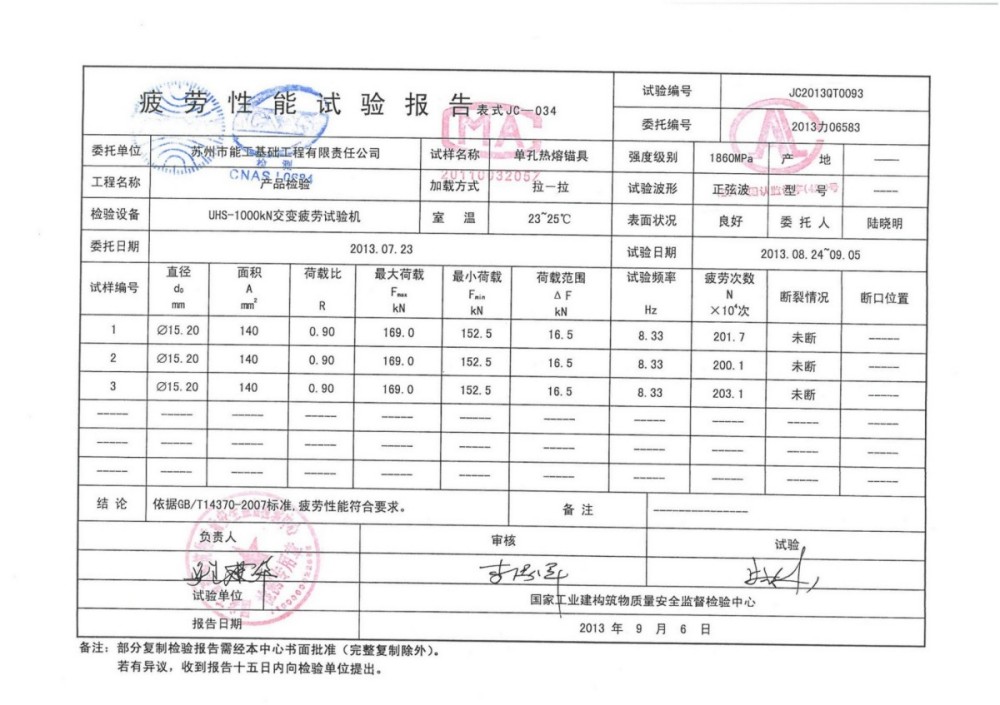 疲劳性能试验报告 表式JC—034
试验编号 JC2013QT0093
委托编号 2013力06583
委托单位 苏州市能工基础工程有限责任公司 试样名称 单孔热熔锚具 强度级别 1860MPa 产 地 ——
工程名称 产品检验 加载方式 拉—拉 试验波形 正弦波 型 号 ----
检验设备 UHS-1000kN交变疲劳试验机 室 温 23~25℃ 表面状况 良好 委托人 陆晓明
委托日期 2013.07.23 试验日期 2013.08.24~09.05
试样编号 直径 d₀ mm 面积 A mm² 荷载比 R 最大荷载 Fmax kN 最小荷载 Fmin kN 荷载范围 ΔF kN 试验频率 Hz 疲劳次数 N ×10⁴次 断裂情况 断口位置
1 ∅15.20 140 0.90 169.0 152.5 16.5 8.33 201.7 未断 -----
2 ∅15.20 140 0.90 169.0 152.5 16.5 8.33 200.1 未断 -----
3 ∅15.20 140 0.90 169.0 152.5 16.5 8.33 203.1 未断 -----
----- ----- ----- ----- ----- ----- ----- ----- ----- ----- -----
----- ----- ----- ----- ----- ----- ----- ----- ----- ----- -----
----- ----- ----- ----- ----- ----- ----- ----- ----- ----- -----
结 论 依据GB/T14370-2007标准,疲劳性能符合要求。 备 注 ---------------
负责人 审核 试验
试验单位 国家工业建构筑物质量安全监督检验中心
报告日期 2013 年 9 月 6 日
备注：部分复制检验报告需经本中心书面批准（完整复制除外）。
若有异议，收到报告十五日内向检验单位提出。
CMA
检 测